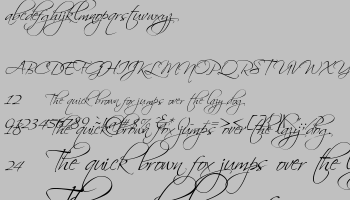 abcdefghijklmnopqrstuvwxyz
ABCDEFGHIJKLMNOPQRSTUVWXYZ
12 The quick brown fox jumps over the lazy dog.
0123456789
18 The quick brown fox jumps over the lazy dog.
24 The quick brown fox jumps over the